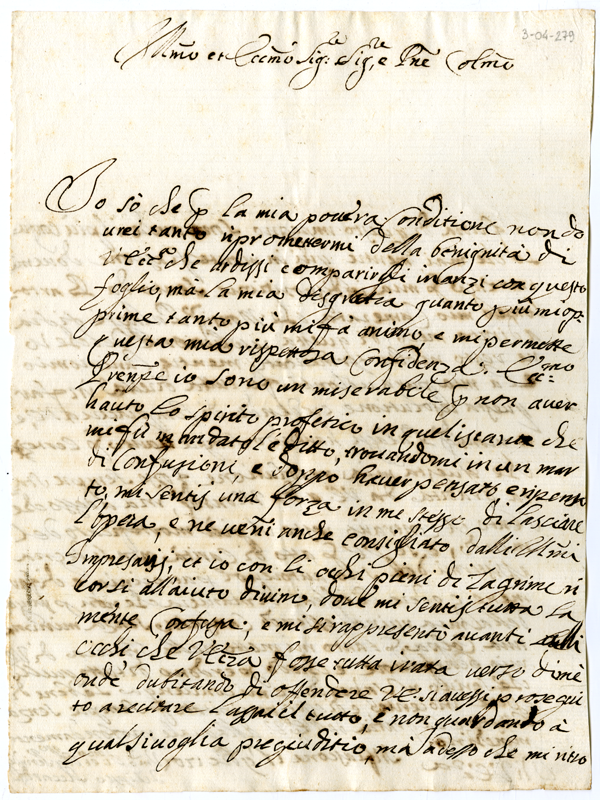 3-04-279
Ill.mo et Ecc.mo Sig.re Sig.re e Pne Colmo
Io sò che p la mia povera Conditione non do
vrei tanto ripromettermi della benignità di
V. Ecc.za che ardissi comparirgli inanzi con questo
foglio, mà la mia disgratia quanto più mi op.
prime tanto più mi fà animo, e mi permette
questa mia rispettosa Confidenza.
Prenpe io sono un miserabile p non aver
hauto lo spirito profetico in quel istante che
mi fù mandato l'editto, trovandomi in un mar
di Confusioni, e doppo haver pensato e ripensa
to, mi sentij una forza in me stesso di lasciare
l'opera, e ne veni anche consigliato dalli Ill.mi
Impresarij, et io con li ochi pieni di lagrime ri
corsi all'aiuto divino, dove mi sentij tutta la
mente Confusa, e mi si rappresentò avanti
che V. Ecc.za fosse tutta irata verso di me
onde dubitando di offendere V.E. si avessi prosegui
to a recitare lassai il tutto, e non guardando à
qualsivoglia pregiuditio, mà adesso che mi ritro